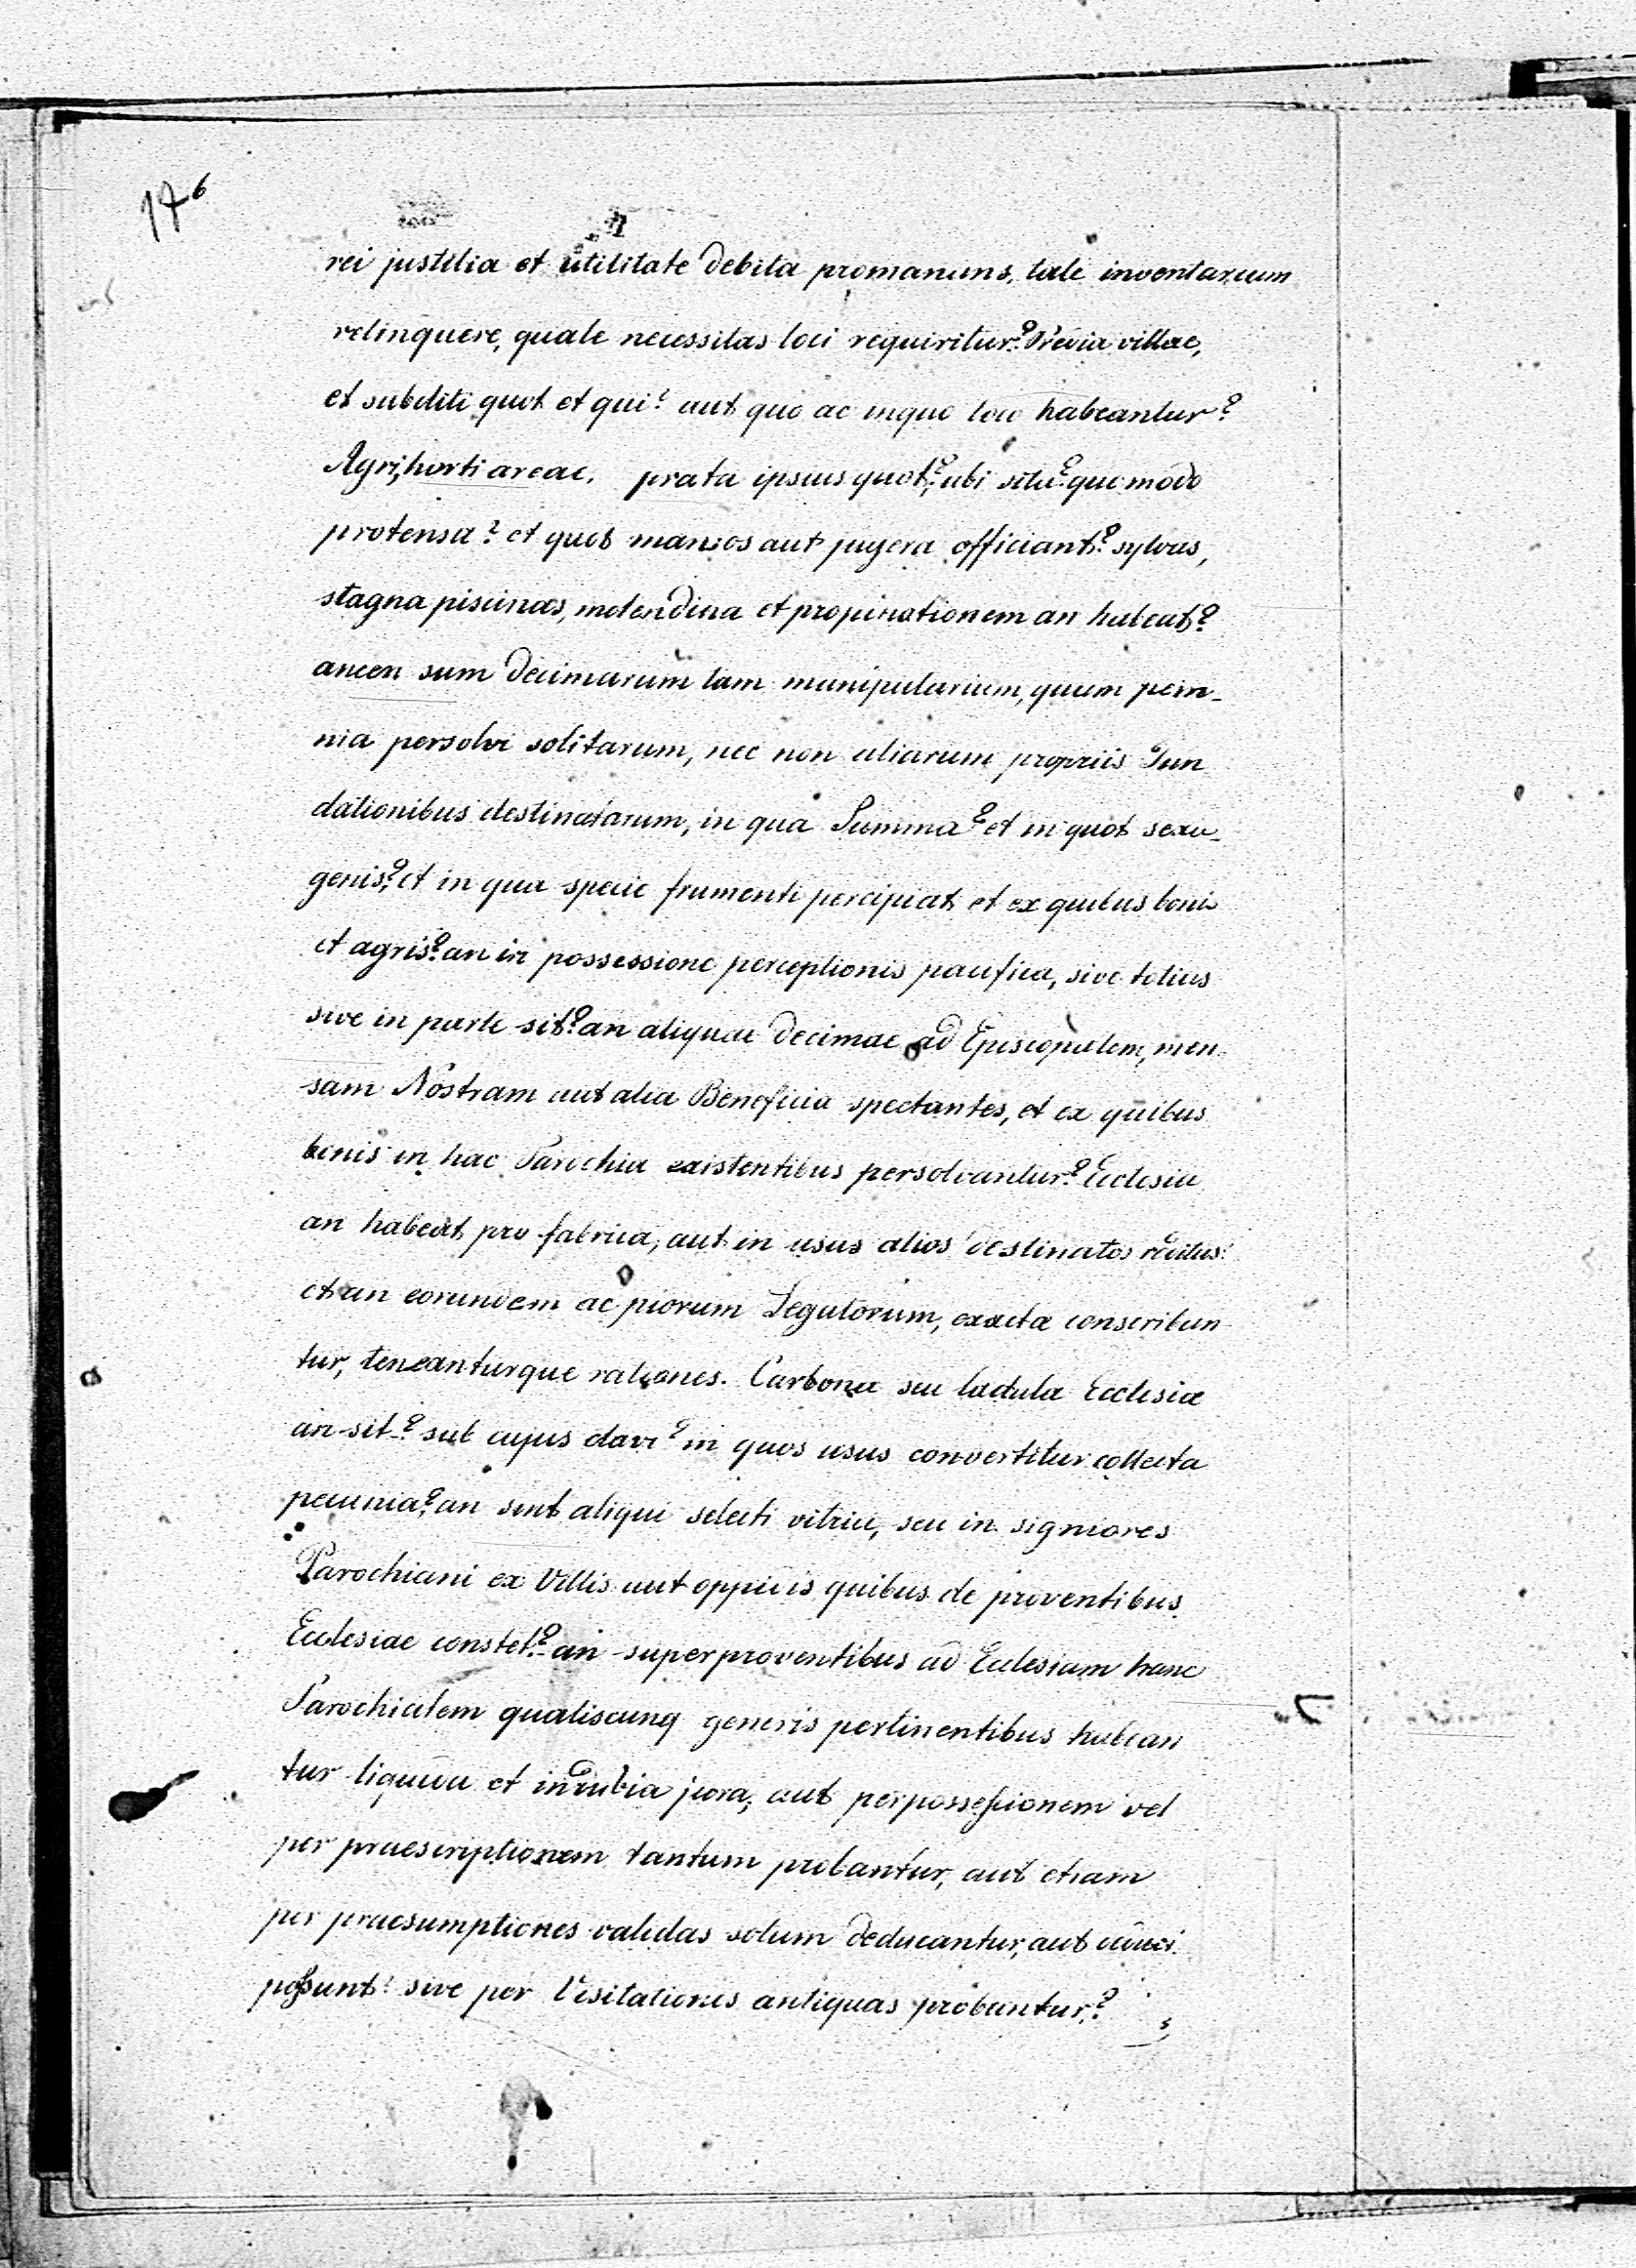 176
rei justitia et utilitate debita promanans, tale inventarium
relinquere, quale necessitas loci requiritur? Prædia villae,
et subditi quot et qui? aut quo ac inquo loco habeantur?
Agri, horti areae, prata ipsius quot? ubi sita? quomodo
protensa? et quot mansos aut jugera officiant? sylvas,
stagna piscinas, molendina et propinationem an habeat?
ancen sum decimarum tam manipularium, quam pecu-
nia persolvi solitarum, nec non aliarum propriis Fun
dationibus destinatarum, in qua Summa? et in quot sexa-
genis? et in qua specie frumenti percipiat et ex quibus bonis
et agris? an in possessione perceptionis pacifica, sive totius
sive in parte sit? an aliquae decimae ad Episcopalem, men-
sam Nostram aut alia Beneficia spectantes, et ex quibus
bonis in hac Parochia existentibus persolvantur? Ecclesia
an habeat pro fabrica, aut in usus alios destinatos reditus?
et an eorundem ac piorum Legatorum, exactæ conscribun
tur, teneanturque rationes. Carbona seu ladula Ecclesiæ
an sit? sub cujus clavi? in quos usus convertitur collecta
pecunia? an sint aliqui selecti vitrici, seu in signiores
Parochiani ex Villis aut oppidis quibus de proventibus
Ecclesiae constet? an super proventibus ad Ecclesiam hanc
Parochialem qualiscunq generis pertinentibus habean
tur liquida et indubia jura, aut per possessionem vel
per praescriptionem tantum probantur, aut etiam
per praesumptiones validas solum deducantur, aut
possunt? sive per Visitationis antiquas probantur?